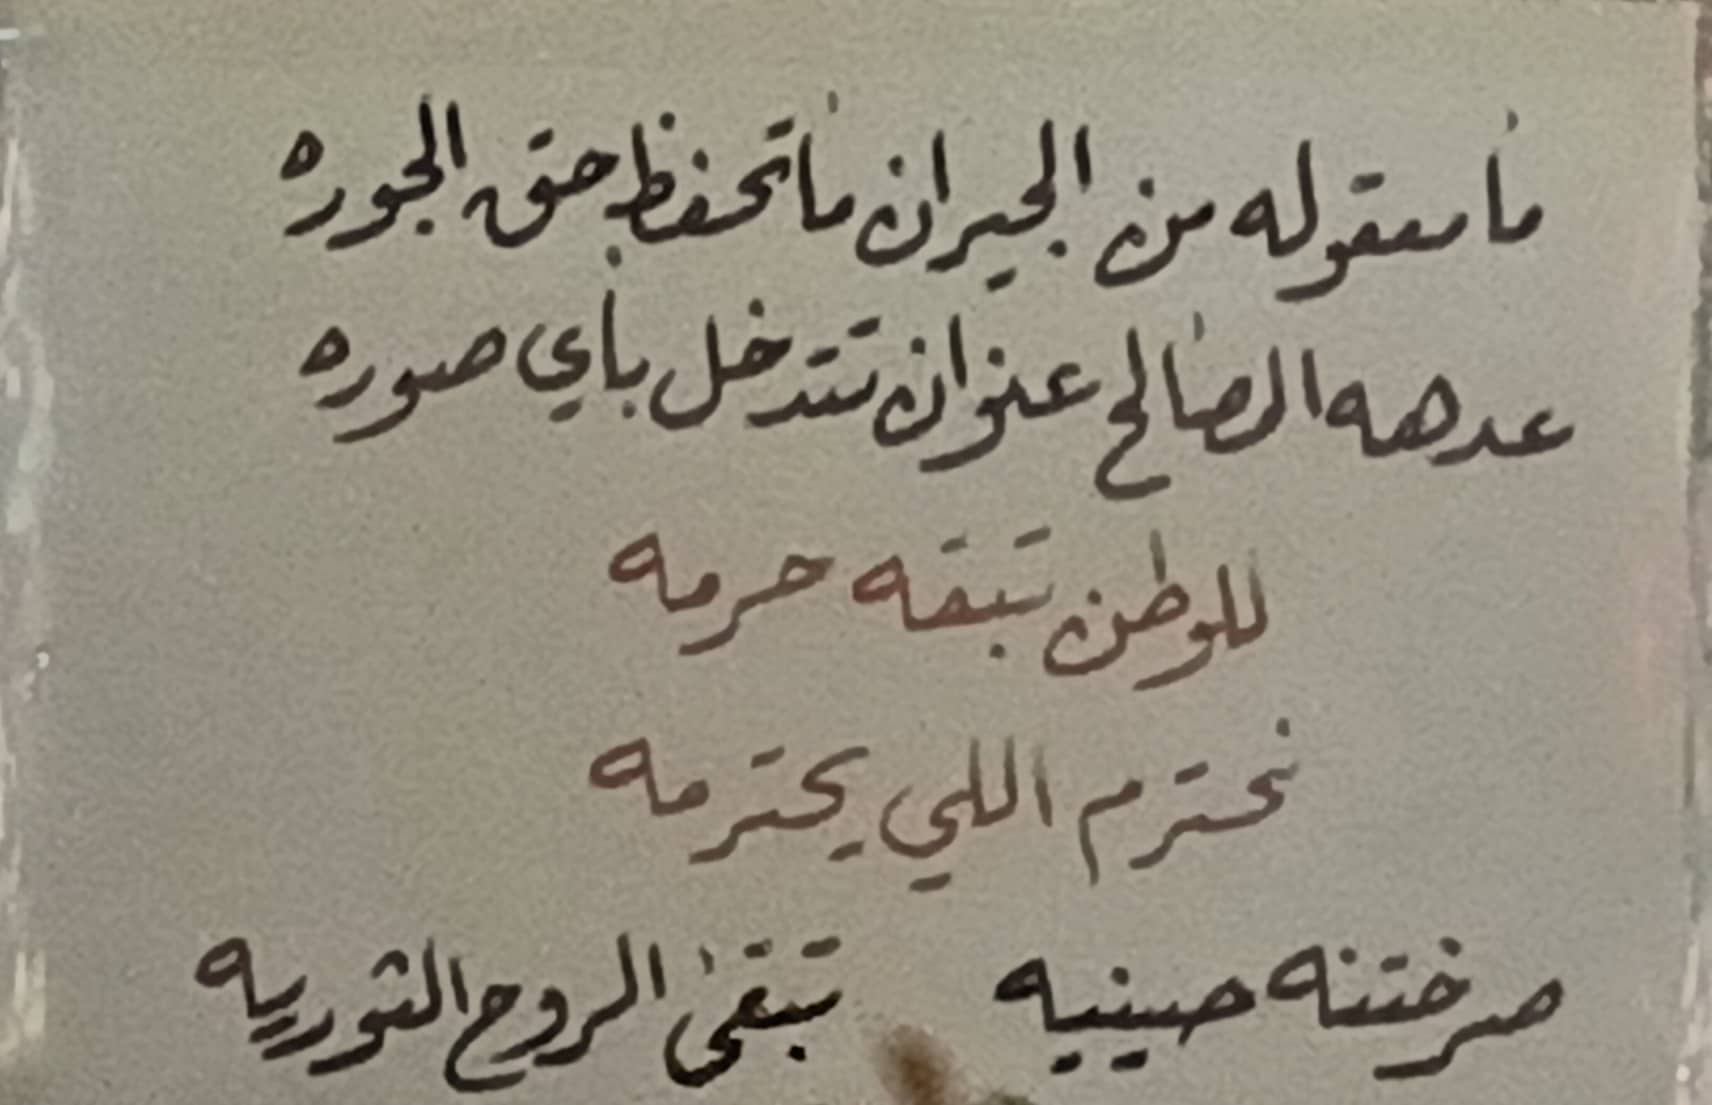 ما معقوله من الجيران ما تحفظ حق الجوره
عدهه المصالح عنوان تتدخل بأي صوره
للوطن تبقه حرمه
نحترم اللي يحترمه
صرختنه حسينيه تبقى الروح الثوريه